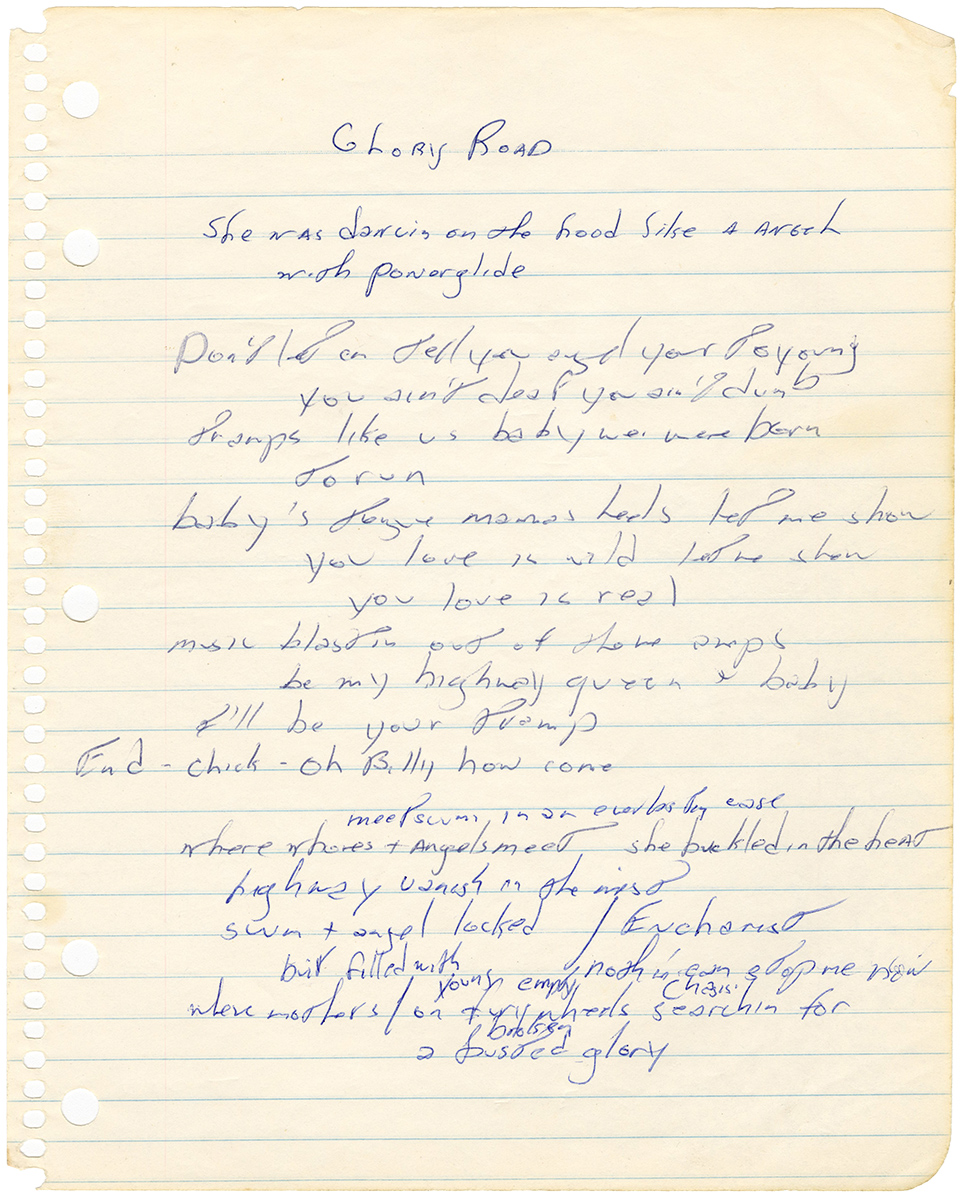 GLORY ROAD
She was dancin on the hood like A ANGEL
with powerglide
Don't let em tell you angel your to young
you ain't deaf you ain't dumb
tramps like us baby we were born
to run
baby's mamas heels let me show
you love is wild let me show
you love is real
music blastin out of them amps
be my highway queen + baby
I'll be your tramp
End - chick - oh Billy how come
meet scum, in an everlastin
where whores + Angels meet she buckled in the heat
highway vanish in the mist
scum + angel locked / Eucharist
but filled with / nothin can stop me now
young empty, chasis
where mothers / on fury wheels searchin for
broken
a busted glory